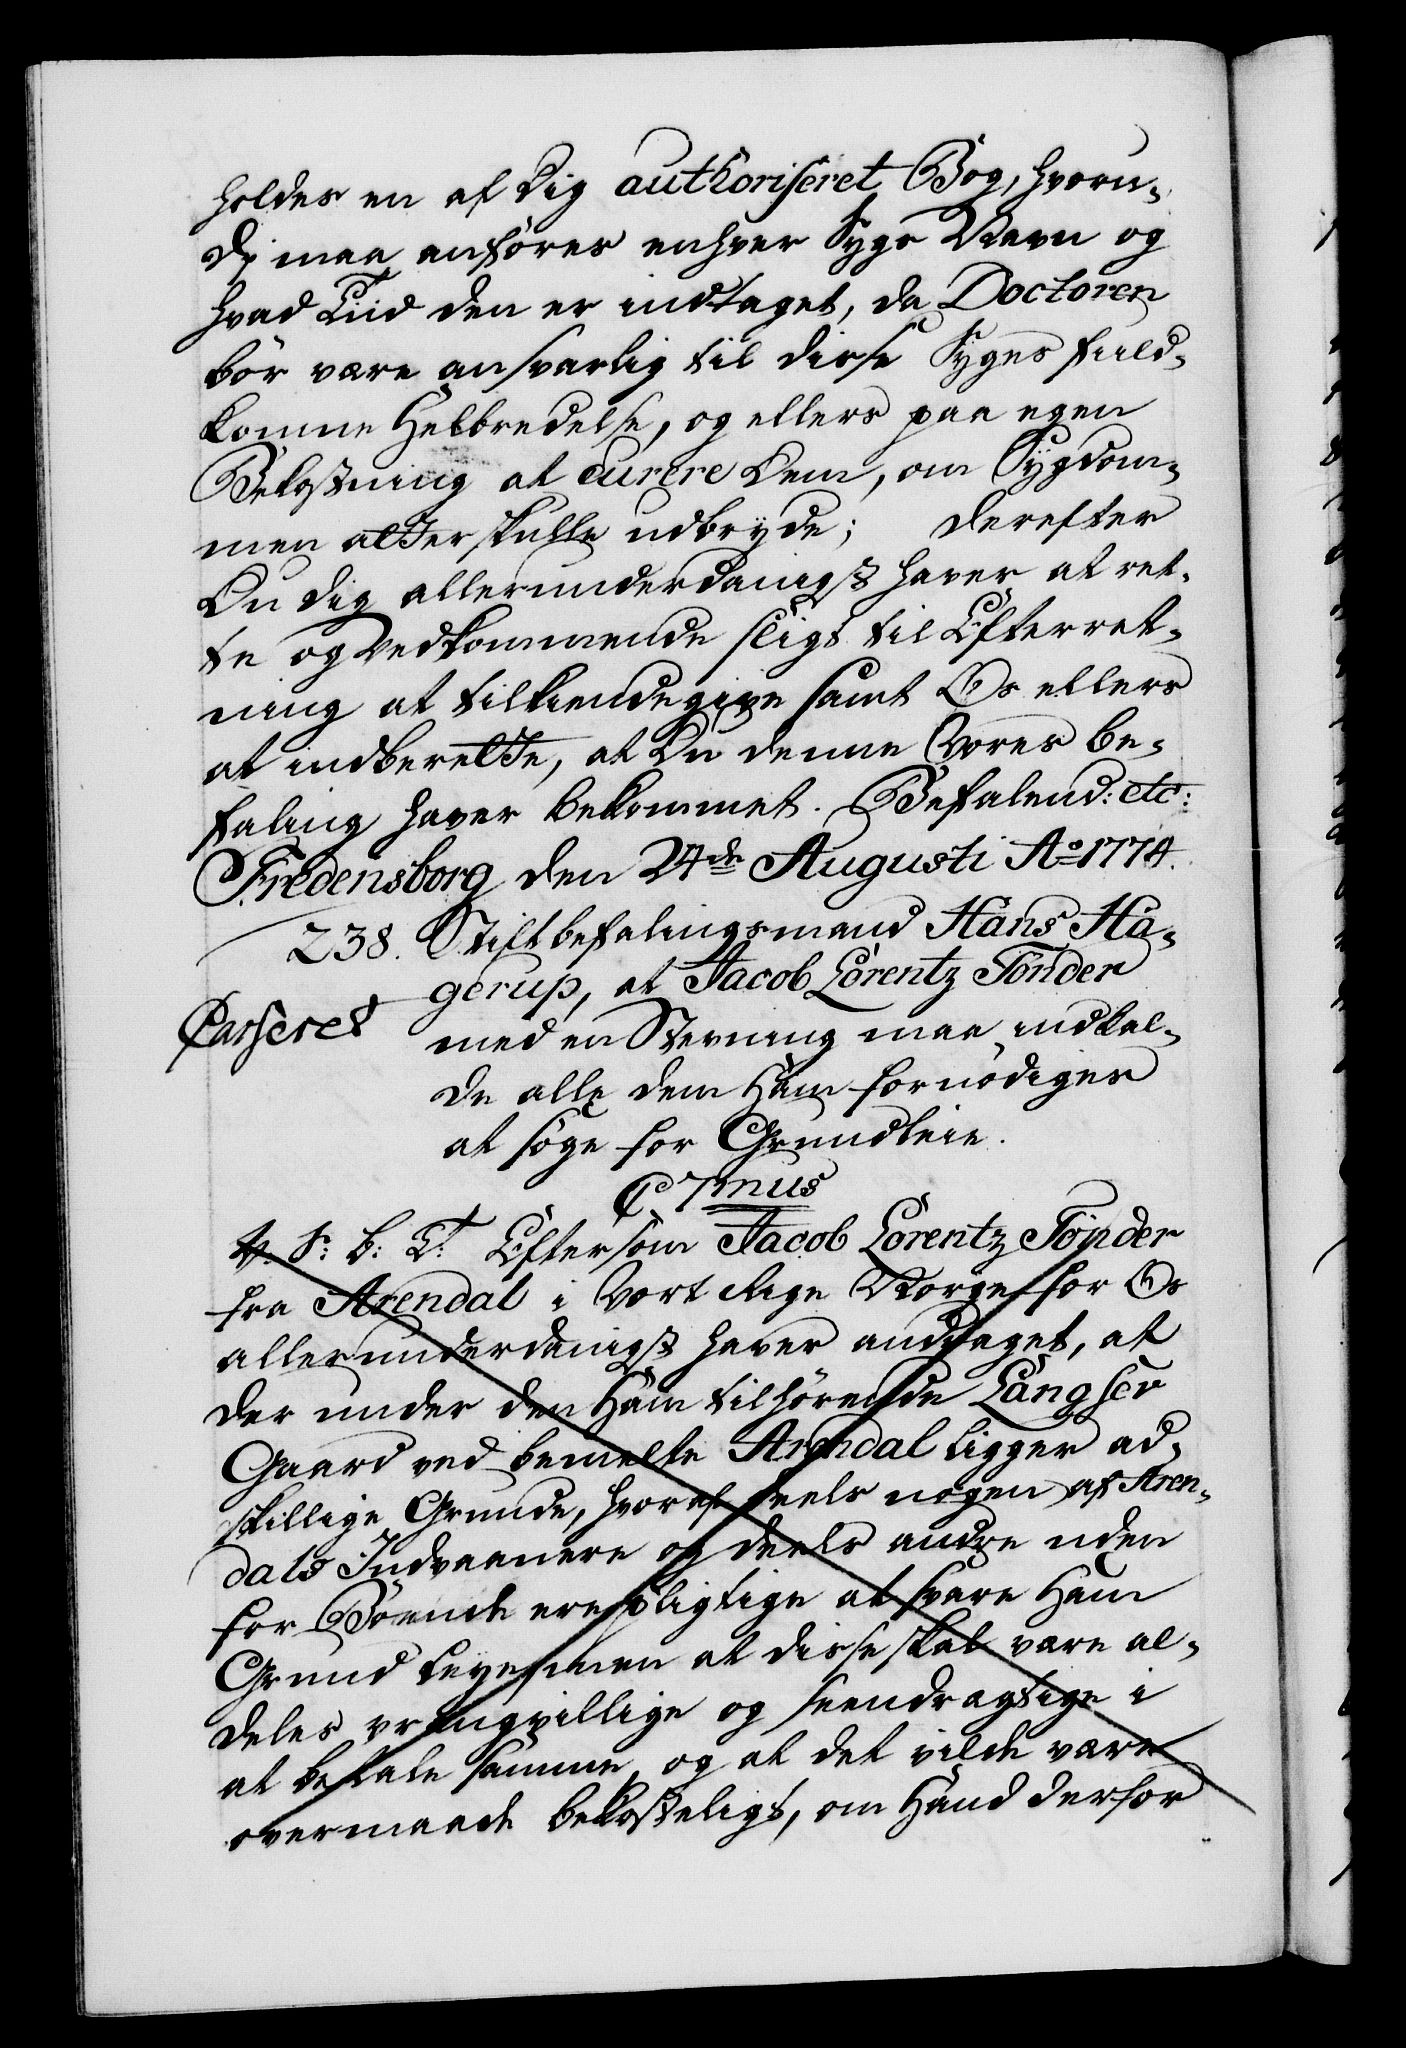 holdes en af Dig authoriseret Bog, hvoru-
di maa anføres enhver Syges Navn og
hvad Tiid den er indtaget, da Doctoren
bør være ansvarlig til disse Syges fuld-
komne Helbredelse, og ellers paa egen
Bekostning at curere dem, om Sygdom-
men atter skulle udbryde; Derefter
Du dig allerunderdanigst haver at ret-
te og Vedkommende sligt til Efterret-
ning at tilkiendegive samt Os ellers
at indberette, at Du denne Vores be-
faling haver bekommet. Befalend: etc:
Fredensborg den 24de Augusti Ao 1774.
238. Stiftbefalingsmand Hans Ha-
gerup, at Jacob Lorentz Tonder
Casseret
med en Stevning maa indkal-
de alle dem Ham fornødiges
at søge for Grundleie.
C 7mus
V. S: b: T: Eftersom Jacob Lorentz Tønder
fra Arendal i Vort Rige Norge for Os
allerunderdanigst haver andraget, at
der under den Ham tilhørende Langsev
Gaard ved bemelte Arendal ligger ad-
skillige Grunde, hvoraf deels nogen af Aren-
dals Indvaanere og deels andre uden
for Boende ere pligtige at svare Ham
Grund Leye, men at disse skal være al-
deles vrangvillige og seendragtige i
at betale samme, og at det vilde være
overmaade bekosteligt, om Hand derfor